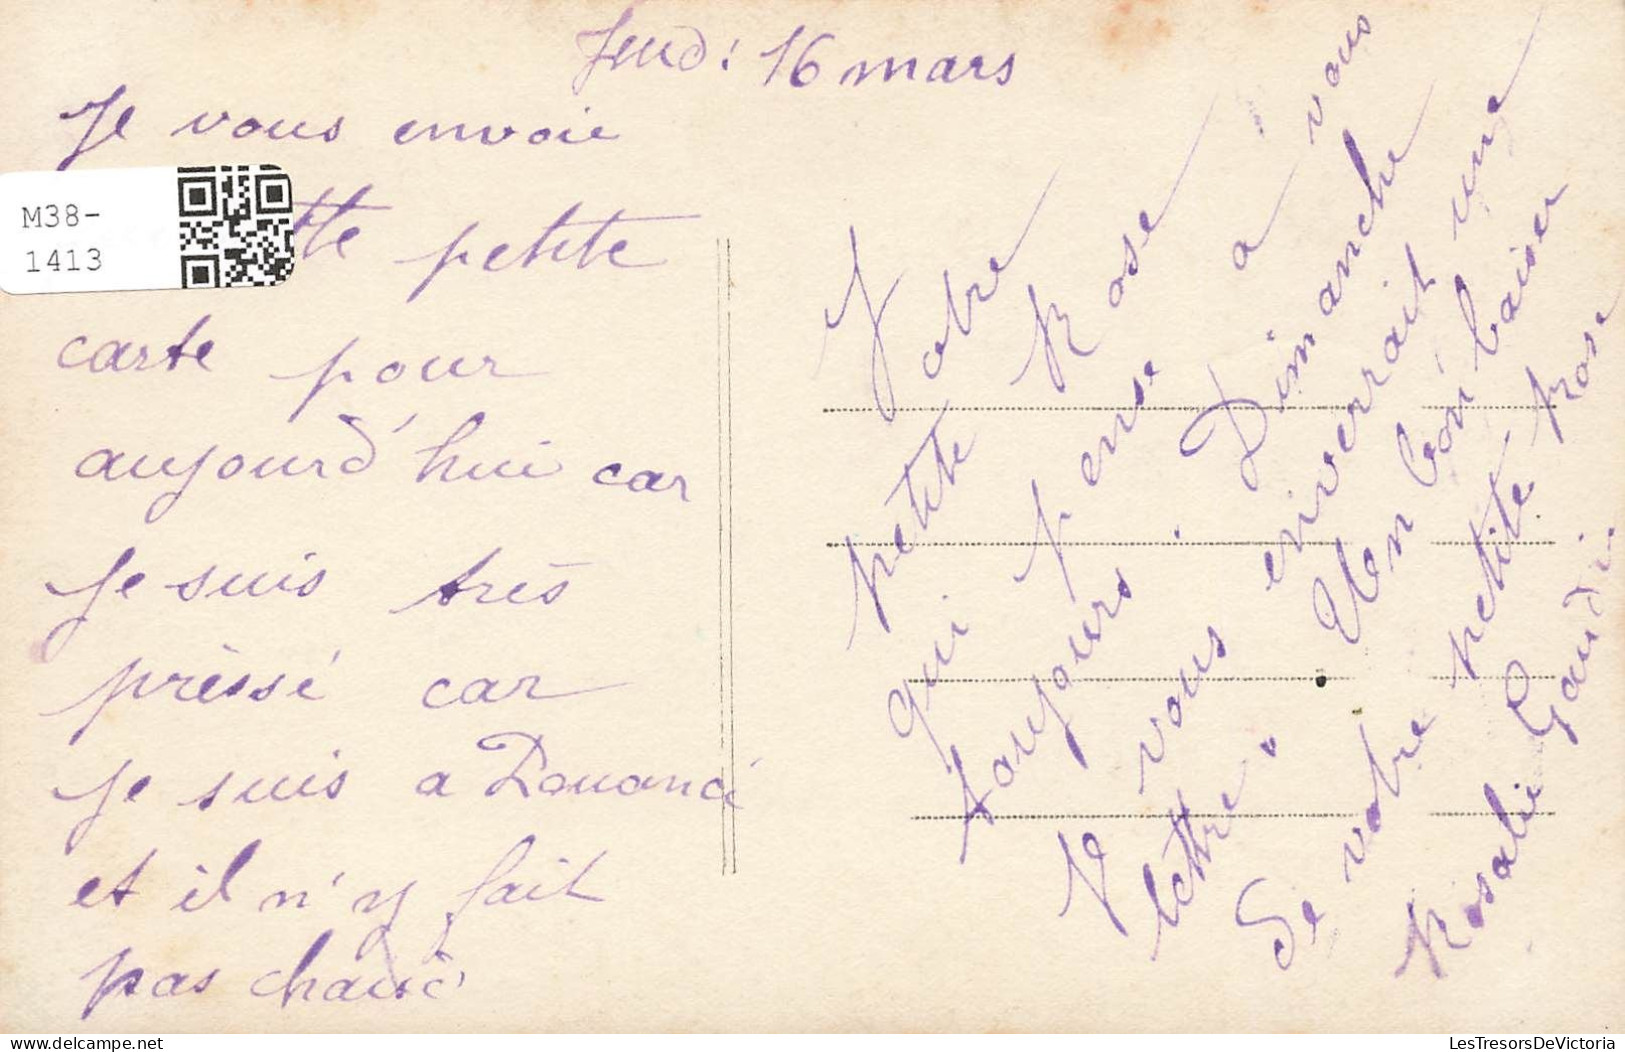 Jeudi 16 mars
Je vous envoie
tte petite
carte pour
aujourd'hui car
je suis très
prèssé car
je suis a
et il n'y fait
pas chaud
Votre
petite Rose
qui pense a vous
toujours. Dimanche
Je vous enverrait une
lettre. Un bon baiser
De votre petite Rose
Rosalie Gaudi
M38-
1413
LesTresorsDeVictoria
delcampe.net
LesTresorsDeVictoria